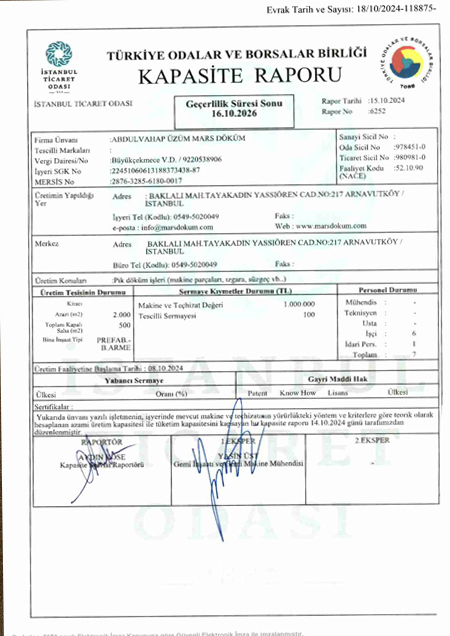 Evrak Tarih ve Sayısı: 18/10/2024-118875-
İSTANBUL
TİCARET
ODASI
TÜRKİYE ODALAR VE BORSALAR BİRLİĞİ
KAPASİTE RAPORU
TOBB
İSTANBUL TİCARET ODASI
Geçerlilik Süresi Sonu
16.10.2026
Rapor Tarihi :15.10.2024
Rapor No :6252
Firma Ünvanı :ABDULVAHAP ÜZÜM MARS DÖKÜM
Tescilli Markaları :
Vergi Dairesi/No :Büyükçekmece V.D. / 9220538906
İşyeri SGK No :22451060613188373438-87
MERSİS No :2876-3285-6180-0017
Sanayi Sicil No :
Oda Sicil No :978451-0
Ticaret Sicil No :980981-0
Faaliyet Kodu :52.10.90
(NACE)
Üretimin Yapıldığı Yer
Adres : BAKLALI MAH.TAYAKADIN YASSIÖREN CAD.NO:217 ARNAVUTKÖY /
İSTANBUL
İşyeri Tel (Kodlu): 0549-5020049 Faks :
e-posta : info@marsdokum.com Web : www.marsdokum.com
Merkez Adres : BAKLALI MAH.TAYAKADIN YASSIÖREN CAD.NO:217 ARNAVUTKÖY /
İSTANBUL
Büro Tel (Kodlu): 0549-5020049 Faks :
Üretim Konuları :Pik döküm işleri (makine parçaları, ızgara, süzgeç vb..)
Üretim Tesisinin Durumu Sermaye Kıymetler Durumu (TL) Personel Durumu
Kiracı
Arazi (m2) 2.000
Toplam Kapalı Saha (m2) 500
Bina İnşaat Tipi PREFAB.-B.ARME
Makine ve Teçhizat Değeri 1.000.000
Tescilli Sermayesi 100
Mühendis : -
Teknisyen : -
Usta : -
İşçi : 6
İdari Pers. : 1
Toplam : 7
Üretim Faaliyetine Başlama Tarihi : 08.10.2024
Yabancı Sermaye Gayri Maddi Hak
Ülkesi Oranı (%) Patent Know How Lisans Ülkesi
Sertifikalar :
Yukarıda ünvanı yazılı işletmeniz, işyerinde mevcut makine ve teçhizatının yürürlükteki yöntem ve kriterlere göre teorik olarak
hesaplanan azami üretim kapasitesi ile tüketim kapasitesini kapsayan bu kapasite raporu 14.10.2024 günü tarafımızdan
düzenlenmiştir.
RAPORTÖR 1.EKSPER 2.EKSPER
AYDIN KÖSE YASİN ÜST
Kapasite Raportörü Gemi İnşaatı ve Makine Mühendisi
İSTANBUL
TİCARET
ODASI